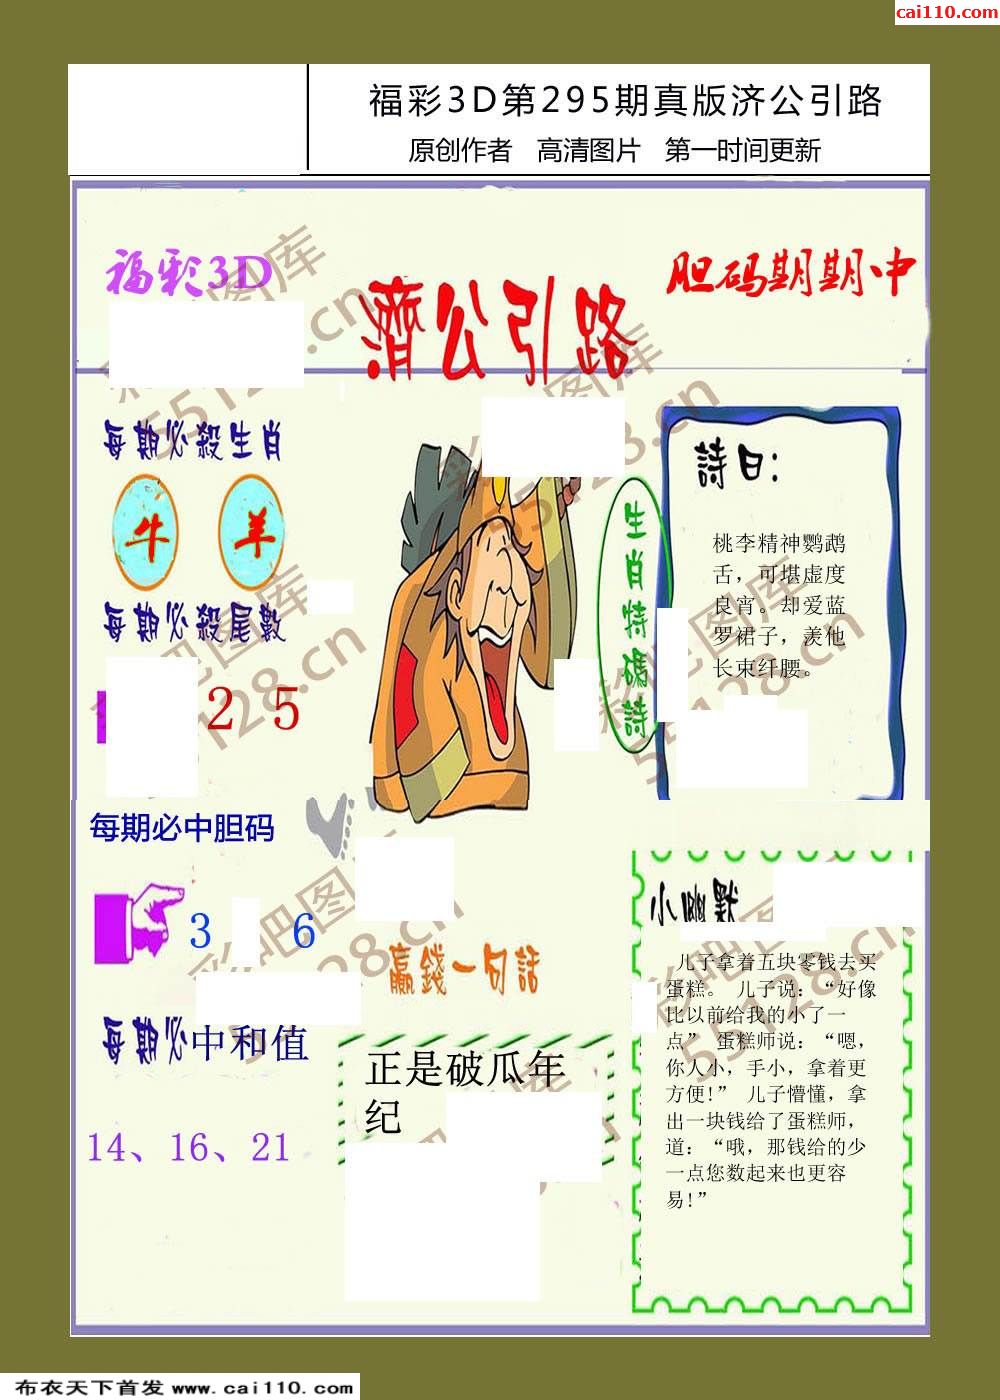 cai110.com
福彩3D第295期真版济公引路
原创作者 高清图片 第一时间更新
福彩3D
濟公引路
胆码期期中
每期必殺生肖
牛 羊
每期必殺尾數
2 5
每期必中胆码
3 6
每期必中和值
14、16、21
生肖特碼詩
詩曰：
桃李精神鹦鹉
舌，可堪虚度
良宵。却爱蓝
罗裙子，羡他
长束纤腰。
贏錢一句話
正是破瓜年
纪
小幽默
儿子拿着五块零钱去买
蛋糕。 儿子说：“好像
比以前给我的小了一
点” 蛋糕师说：“嗯，
你人小，手小，拿着更
方便!” 儿子懵懂，拿
出一块钱给了蛋糕师，
道：“哦，那钱给的少
一点您数起来也更容
易!”
彩吧图库
55128.cn
布衣天下首发 www.cai110.com